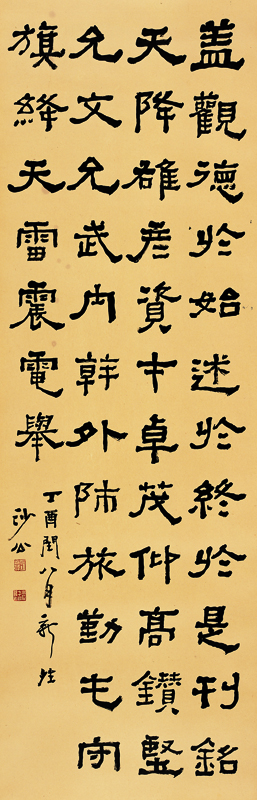 盖觀德於始述於終於是刊銘
天降雄彦資才卓茂仰高鑽堅
允文允武内幹外師旅勤屯守
旗絳天雷震電舉
丁酉閏八月新
沙公